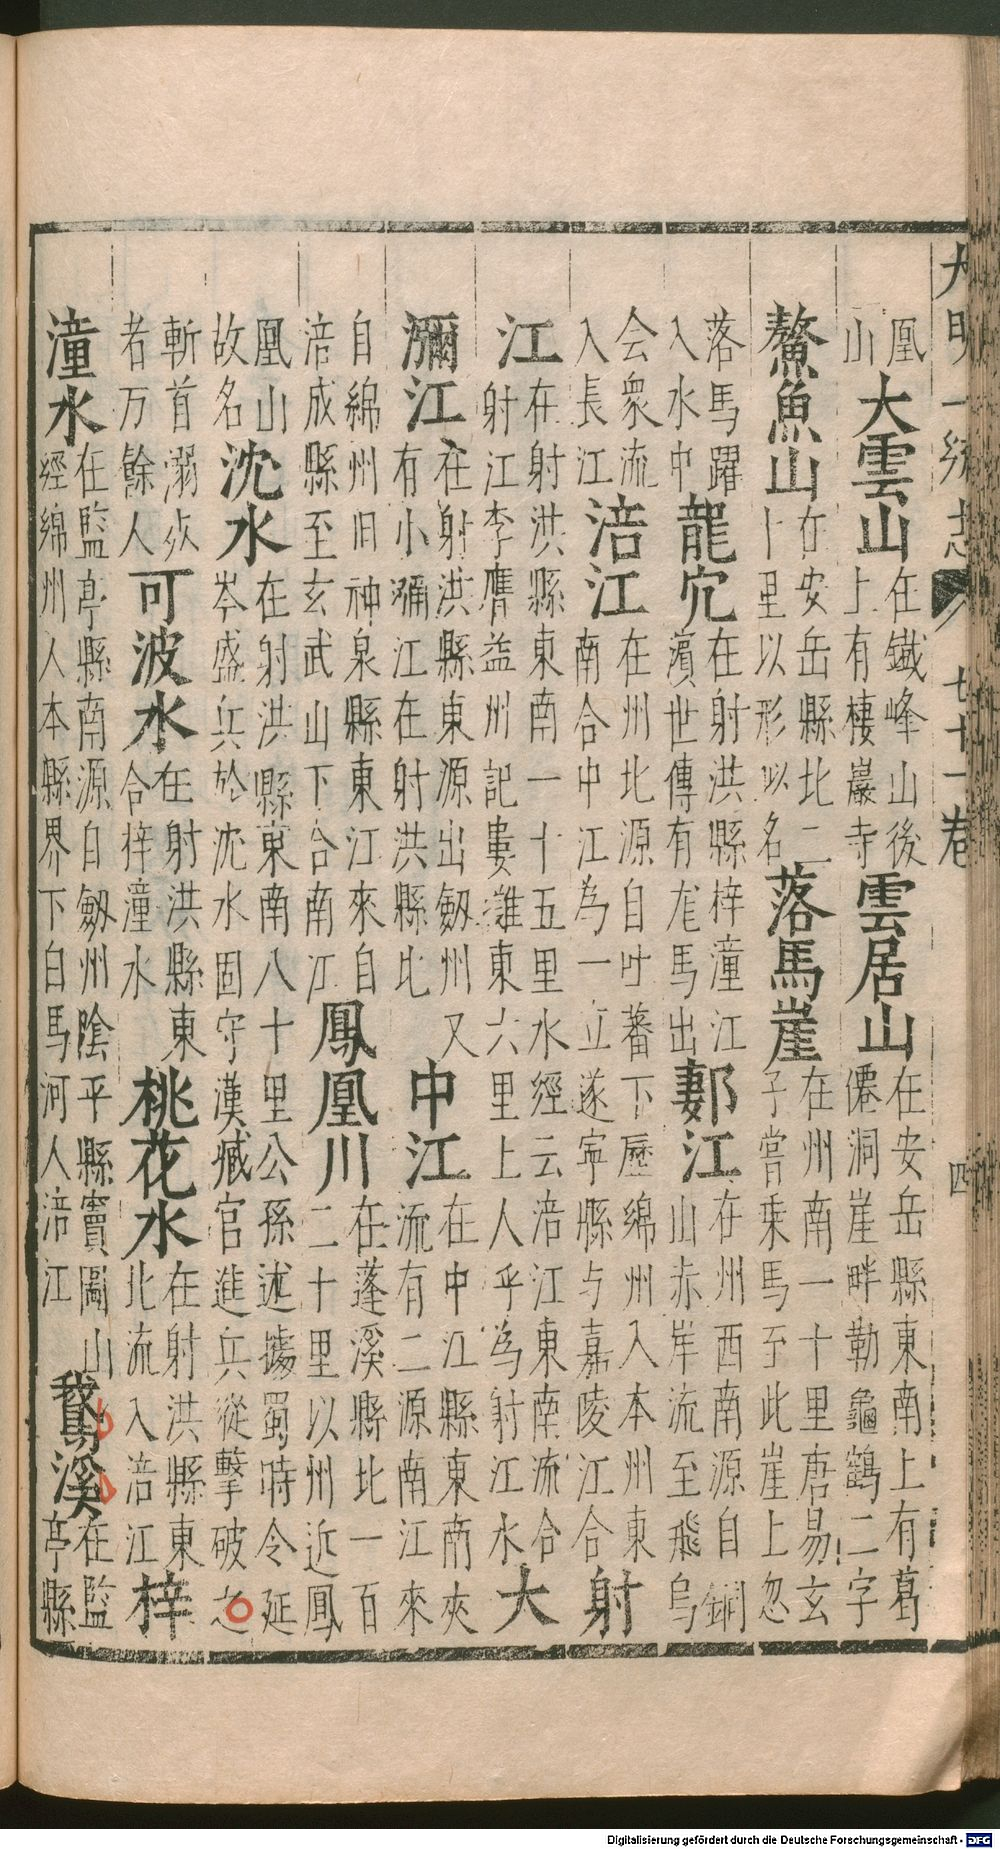 大明一統志 七十一卷 四
凰山 大雲山 在鐵峰山後上有棲巖寺 雲居山 在安岳縣東南上有葛僊洞崖畔勒龜鶴二字
鰲魚山 在安岳縣北二十里以形似名 落馬崖 在州南一十里唐易玄子嘗乘馬至此崖上忽
落馬躍入水中 龍穴 在射洪縣梓潼江濱世傳有龙馬出 郪江 在州西南源自銅山赤岸流至飛烏
会衆流入長江 涪江 在州北源自吐蕃下歷綿州入本州東南合中江為一立遂寧縣与嘉陵江合 射
江 在射洪縣東南一十五里水經云涪江東南流合射江李膺益州記婁東六里上人乎為射江水 大
瀰江 在射洪縣東源出劔州又有小瀰江在射洪縣北 中江 在中江縣東南夾流有二源南江來
自綿州旧神泉縣東江來自涪成縣至玄武山下合南江 鳳凰川 在蓬溪縣北一百二十里以州近鳳
凰山故名 沈水 在射洪縣東南八十里公孫述據蜀時令延岑盛兵於沈水固守漢臧官進兵從擊破之
斬首溺死者万餘人 可波水 在射洪縣東合梓潼水 桃花水 在射洪縣東北流入涪江 梓
潼水 在監亭縣南源自劔州陰平縣竇圌山經綿州人本縣界下白馬河人涪江 鵝溪 在監亭縣
Digitalisierung gefördert durch die Deutsche Forschungsgemeinschaft - DFG